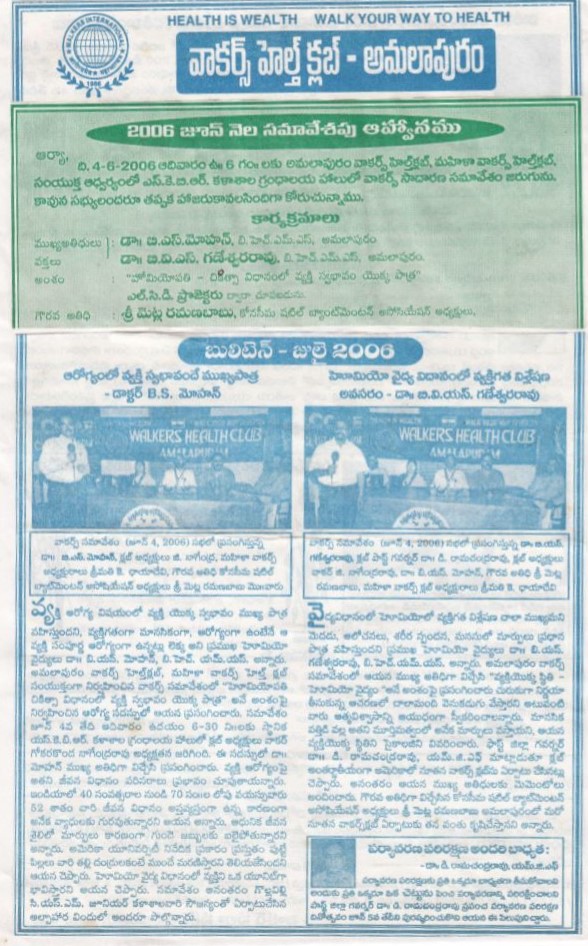 HEALTH IS WEALTH WALK YOUR WAY TO HEALTH
WALKERS INTERNATIONAL
వాకర్స్ హెల్త్ క్లబ్ - అమలాపురం
2006 జూన్ నెల సమావేశపు ఆహ్వానము
ఆర్యా,
ది. 4-6-2006 ఆదివారం ఉ॥ 6 గం॥లకు అమలాపురం వాకర్స్ హెల్త్‌క్లబ్, మహిళా వాకర్స్ హెల్త్‌క్లబ్,
సంయుక్త ఆధ్వర్యంలో ఎస్.కె.బి.ఆర్. కళాశాల గ్రంధాలయ హాలులో వాకర్స్ సాధారణ సమావేశం జరుగును.
కావున సభ్యులందరూ తప్పక హాజరుకావలసిందిగా కోరుచున్నాము.
కార్యక్రమాలు
ముఖ్యఅతిథులు : డా॥ బి.ఎస్.మోహన్, బి.హెచ్.ఎమ్.ఎస్, అమలాపురం
వక్తలు : డా॥ బి.వి.ఎస్. గణేశ్వరరావు, బి.హెచ్.ఎమ్.ఎస్, అమలాపురం.
అంశం : "హోమియోపతి - చికిత్సా విధానంలో వ్యక్తి స్వభావం యొక్క పాత్ర"
ఎల్.సి.డి. ప్రొజెక్టరు ద్వారా చూపబడును.
గౌరవ అతిథి : శ్రీ మెట్ల రమణబాబు, కోనసీమ షటిల్ బ్యాంట్‌మెంటన్ అసోసియేషన్ అధ్యక్షులు.
బులిటెన్ - జులై 2006
ఆరోగ్యంలో వ్యక్తి స్వభావందే ముఖ్యపాత్ర
- డాక్టర్ B.S. మోహన్
WALKERS HEALTH CLUB
AMALAPURAM
వాకర్స్ సమావేశం (జూన్ 4, 2006) సభలో ప్రసంగిస్తున్న
డా॥ బి.ఎస్.మోహన్, క్లబ్ అధ్యక్షులు జి. నాగేంద్ర, మహిళా వాకర్స్
అధ్యక్షురాలు శ్రీమతి B. ఛాయాదేవి, గౌరవ అతిథి కోనసీమ షటిల్
బ్యాట్‌మెంటన్ అసోషియేషన్ అధ్యక్షులు శ్రీ మెట్ల రమణబాబు
వ్యక్తి ఆరోగ్య విషయంలో వ్యక్తి యొక్క స్వభావం ముఖ్య పాత్ర
వహిస్తుందని, వ్యక్తిగతంగా మానసికంగా, ఆరోగ్యంగా ఉంటేనే ఆ
వ్యక్తి సంపూర్ణ ఆరోగ్యంగా ఉన్నట్లు లెక్క అని ప్రముఖ హోమియో
వైద్యులు డా॥ బి.యస్. మోహన్, బి.హెచ్. యమ్.యస్. అన్నారు.
అమలాపురం వాకర్స్ హెల్త్‌క్లబ్, మహిళా వాకర్స్ హెల్త్ క్లబ్
సంయుక్తంగా నిర్వహించిన వాకర్స్ సమావేశంలో "హోమియోపతి
చికిత్సా విధానంలో వ్యక్తి స్వభావం యొక్క పాత్ర" అనే అంశంపై
నిర్వహించిన ఆరోగ్య సదస్సులో ఆయన ప్రసంగించారు. సమావేశం
జూన్ 4వ తేదీ ఆదివారం ఉదయం 6-30 ని॥లకు స్థానిక
యస్.కె.బి.ఆర్. కళాశాల గ్రంధాలయ హాలులో క్లబ్ అధ్యక్షులు వాకర్
గోకరకొండ నాగేంద్రరావు అధ్యక్షతన జరిగింది. ఈ సదస్సులో డా॥
మోహన్ ముఖ్య అతిథిగా విచ్చేసి ప్రసంగించారు. వ్యక్తి ఆరోగ్యంపై
అతని జీవన విధానం పరిసరాలు ప్రభావం చూపుతాయన్నారు.
ఇండియాలో 40 సంవత్సరాల నుండి 70 సం॥ల లోపు వయస్సువారు
52 శాతం వారి జీవన విధానం అస్తవ్యస్తంగా ఉన్న కారణంగా
అనేక వ్యాధులకు గురవుతున్నారని ఆయన అన్నారు. ఆధునిక జీవన
శైలిలో మార్పులు కారణంగా గుండె జబ్బులకు బలైపోతున్నారని
అన్నారు. అమెరికా యూనివర్సిటీ నివేదిక ప్రకారం ప్రస్తుతం పుట్టే
పిల్లలు వారి తల్లి దండ్రులకంటే ముందే మరణిస్తారని తెలియజేసిందని
ఆయన చెప్పారు. హోమియో వైద్య విధానంలో వ్యక్తిని ఒక యూనిట్‌గా
భావిస్తారని ఆయన చెప్పారు. సమావేశం అనంతరం గొల్లవిల్లి
సి.యస్.ఎమ్. జూనియర్ కళాశాలవారి సౌజన్యంతో ఏర్పాటుచేసిన
అల్పాహార విందులో అందరూ పాల్గొన్నారు.
హోమియో వైద్య విధానంలో వ్యక్తిగత విశ్లేషణ
అవసరం - డా॥ బి.వి.యస్. గణేశ్వరరావు
WALKERS HEALTH CLUB
AMALAPURAM
వాకర్స్ సమావేశం (జూన్ 4, 2006) సభలో ప్రసంగిస్తున్న డా॥ బి.యస్.
గణేశ్వరరావు, క్లబ్ పాస్ట్ గవర్నర్ డా॥ డి. రామచంద్రరావు, క్లబ్ అధ్యక్షులు
వాకర్ జి. నాగేంద్రరావు, డా॥ బి.యస్. మోహన్, గౌరవ అతిథి శ్రీ మెట్ల
రమణబాబు, మహిళా వాకర్స్ క్లబ్ అధ్యక్షురాలు శ్రీమతి B. ఛాయాదేవి
వైద్యవిధానంలో హోమియోలో వ్యక్తిగత విశ్లేషణ చాలా ముఖ్యమని
మెదడు, ఆలోచనలు, శరీర స్పందన, మనసులో మార్పులు ప్రధాన
పాత్ర వహిస్తుందని ప్రముఖ హోమియో వైద్యులు డా॥ బి.యస్.
గణేశ్వరరావు, బి.హెచ్.యమ్.యస్. అన్నారు. అమలాపురం వాకర్స్
సమావేశంలో ఆయన ముఖ్య అతిథిగా విచ్చేసి "వ్యక్తియొక్క స్థితి -
హోమియో వైద్యం" అనే అంశంపై ప్రసంగించారు చురుకుగా నిర్ణయా
తీసుకున్న ఆచరణలో చాలామంది వెనుకడుగు వేస్తారని అటువంటి
వారు ఆత్మవిశ్వాసాన్ని ఆయుధంగా స్వీకరించాలన్నారు. మానసిక
వత్తిడి వల్ల అతని మూర్తిమత్వంలో అనేక మార్పులు వస్తాయని, ఆయన
వ్యక్తియొక్క స్థితిని సైకాలజీని వివరించారు. పాస్ట్ జిల్లా గవర్నర్
డా॥ డి. రామచంద్రరావు, యమ్.జె.ఎఫ్ మాట్లాడుతూ క్లబ్
అంతర్జాతీయంగా అమెరికాలో నూతన వాకర్స్ క్లబ్‌ను ఏర్పాటు చేసినట్లు
చెప్పారు. అనంతరం ఆయన ముఖ్య అతిథులకు మెమెంటోలు
అందించారు. గౌరవ అతిథిగా విచ్చేసిన కోనసీమ షటిల్ బ్యాట్‌మెంటన్
అసోషియేషన్ అధ్యక్షులు శ్రీ మెట్ల రమణబాబు అమలాపురంలో మరో
నూతన వాకర్స్‌క్లబ్ ఏర్పాటుకు తన వంతు కృషిచేస్తానని అన్నారు.
పర్యావరణ పరిరక్షణ అందరి బాధ్యత:
- డా॥డి. రామచంద్రరావు, యమ్.జె.ఎఫ్